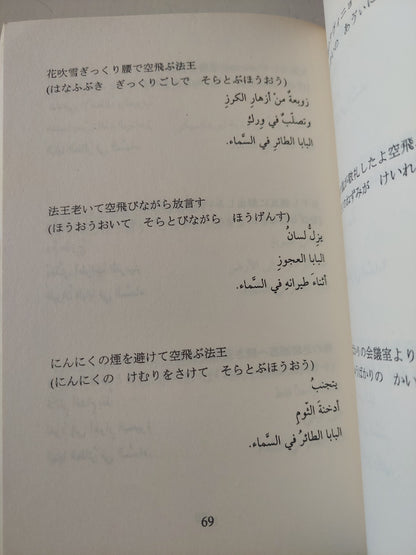 花吹雪ぎっくり腰で空飛ぶ法王
(はなふぶき　ぎっくりごしで　そらとぶほうおう)
زوبعةٌ منْ أزهارِ الكرزِ
وتصلّبٌ في وِركِ
البابا الطائرِ في السَّماء.
法王老いて空飛びながら放言す
(ほうおうおいて　そらとびながら　ほうげんす)
يزلُّ لسانُ
البابا العجوزِ
أثناءَ طيرانِهِ في السَّماء.
にんにくの煙を避けて空飛ぶ法王
(にんにくの　けむりをさけて　そらとぶほうおう)
يتجنبُ
أدخنةَ الثّومِ
البابا الطائرُ في السَّماء.
69
の会議室より
ばかりの　かい